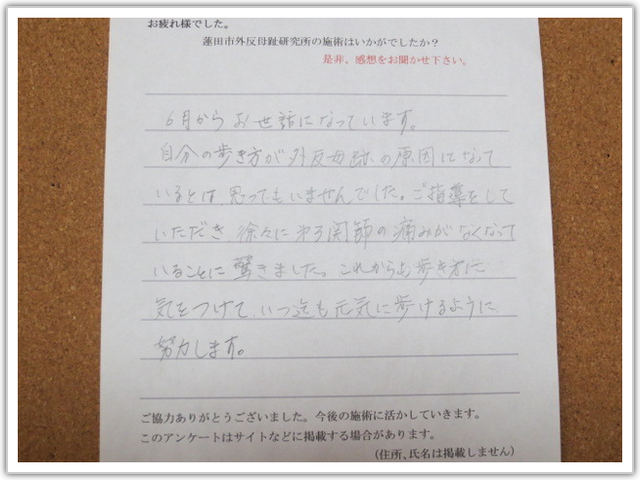 お疲れ様でした。
蓮田市外反母趾研究所の施術はいかがでしたか？
是非、感想をお聞かせ下さい。
6月からお世話になっています。
自分の歩き方が外反母趾の原因になって
いるとは、思ってもいませんでした。ご指導をして
いただき、徐々に 関節の痛みがなくなって
いることに驚きました。これからも歩き方に
気をつけて、いつ迄も元気に歩けるように、
努力します。
ご協力ありがとうございました。今後の施術に活かしていきます。
このアンケートはサイトなどに掲載する場合があります。
（住所、氏名は掲載しません）